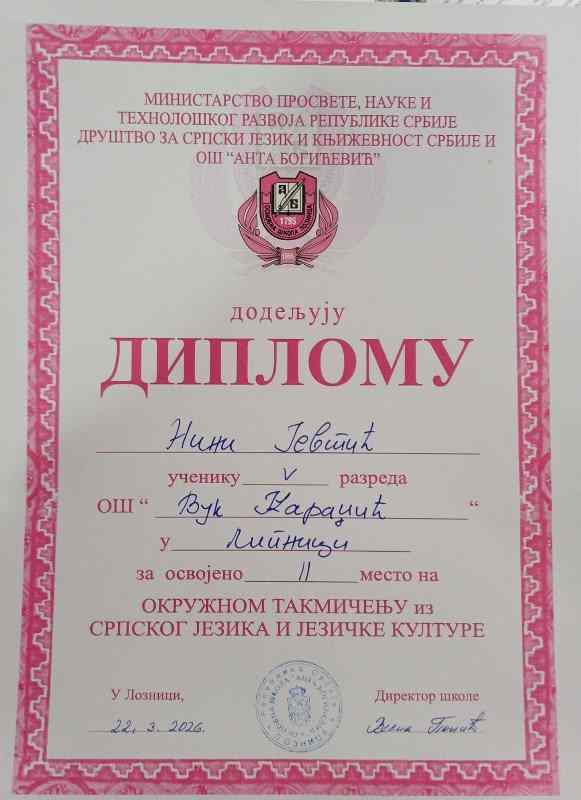 МИНИСТАРСТВО ПРОСВЕТЕ, НАУКЕ И
ТЕХНОЛОШКОГ РАЗВОЈА РЕПУБЛИКЕ СРБИЈЕ
ДРУШТВО ЗА СРПСКИ ЈЕЗИК И КЊИЖЕВНОСТ СРБИЈЕ И
ОШ “АНТА БОГИЋЕВИЋ”
1795
додељују
ДИПЛОМУ
Нини Јевтић
ученику V разреда
ОШ “ Вук Караџић “
у Липници
за освојено II место на
ОКРУЖНОМ ТАКМИЧЕЊУ из
СРПСКОГ ЈЕЗИКА И ЈЕЗИЧКЕ КУЛТУРЕ
У Лозници, Директор школе
22. 3. 2026.